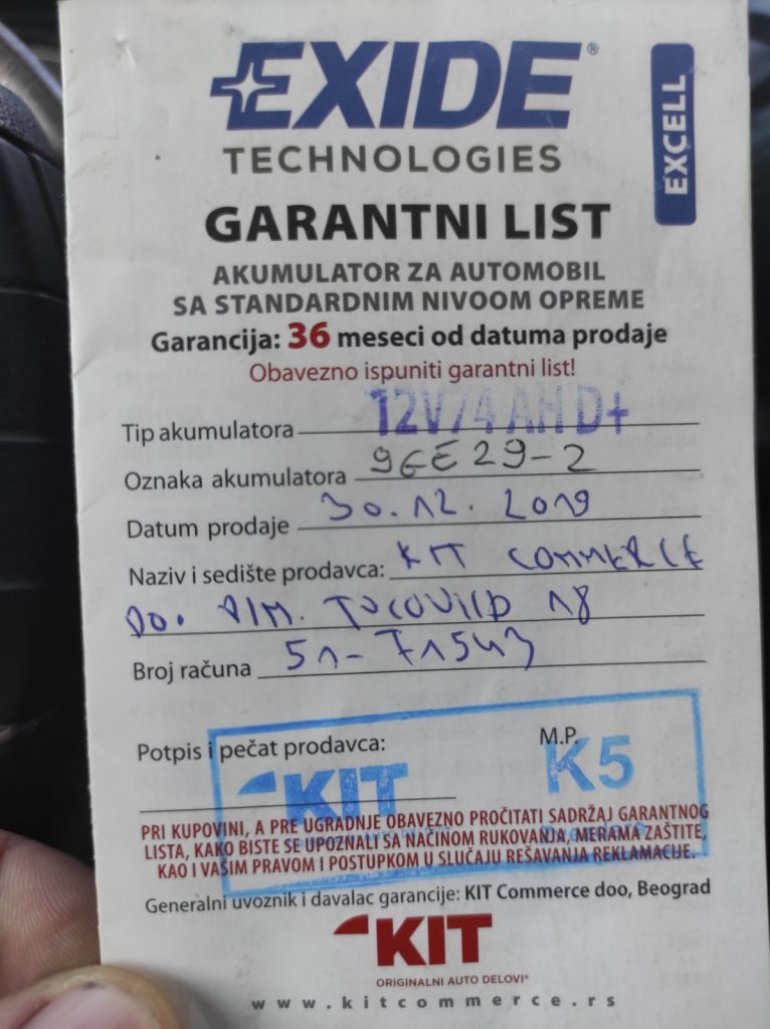 EXIDE®
TECHNOLOGIES
EXCELL
GARANTNI LIST
AKUMULATOR ZA AUTOMOBIL
SA STANDARDNIM NIVOOM OPREME
Garancija: 36 meseci od datuma prodaje
Obavezno ispuniti garantni list!
Tip akumulatora 12V74AH D+
Oznaka akumulatora 9GE29-2
Datum prodaje 30.12.2019
Naziv i sedište prodavca: KIT COMMERCE
18
Broj računa 51-71543
Potpis i pečat prodavca: M.P.
KIT K5
PRI KUPOVINI, A PRE UGRADNJE OBAVEZNO PROČITATI SADRŽAJ GARANTNOG
LISTA, KAKO BISTE SE UPOZNALI SA NAČINOM RUKOVANJA, MERAMA ZAŠTITE,
KAO I VAŠIM PRAVOM I POSTUPKOM U SLUČAJU REŠAVANJA REKLAMACIJE.
Generalni uvoznik i davalac garancije: KIT Commerce doo, Beograd
KIT
ORIGINALNI AUTO DELOVI®
www.kitcommerce.rs